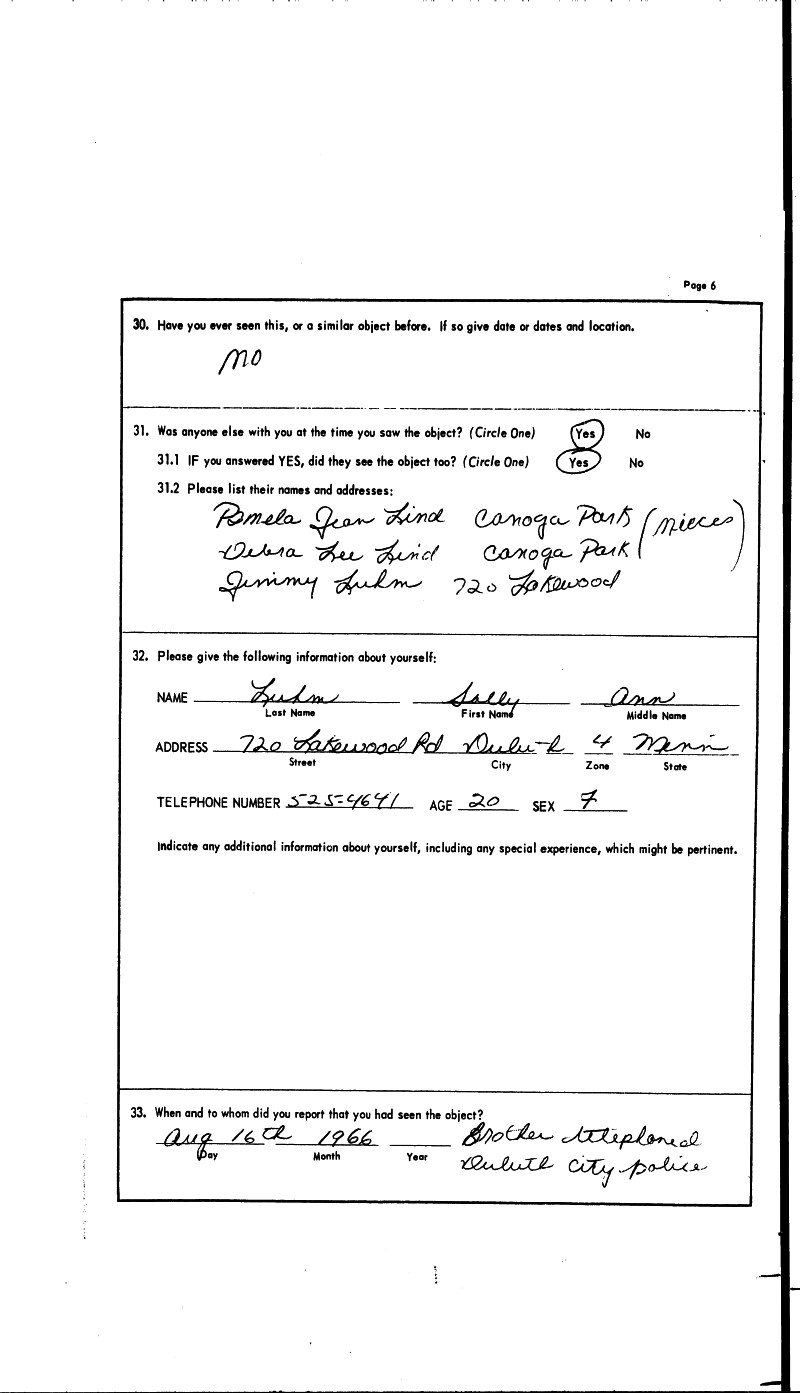 Page 6
30. Have you ever seen this, or a similar object before. If so give date or dates and location.
no
31. Was anyone else with you at the time you saw the object? (Circle One) Yes No
31.1 IF you answered YES, did they see the object too? (Circle One) Yes No
31.2 Please list their names and addresses:
Pamela Jean Lind Canoga Park (nieces)
Debra Lee Lind Canoga Park
Jimmy Luhm 720 Lakewood
32. Please give the following information about yourself:
NAME Luhm Sally Ann
Last Name First Name Middle Name
ADDRESS 720 Lakewood Rd Duluth 4 Minn
Street City Zone State
TELEPHONE NUMBER 525-4641 AGE 20 SEX F
Indicate any additional information about yourself, including any special experience, which might be pertinent.
33. When and to whom did you report that you had seen the object?
Aug 16th 1966 Brother telephoned
Day Month Year Duluth city police